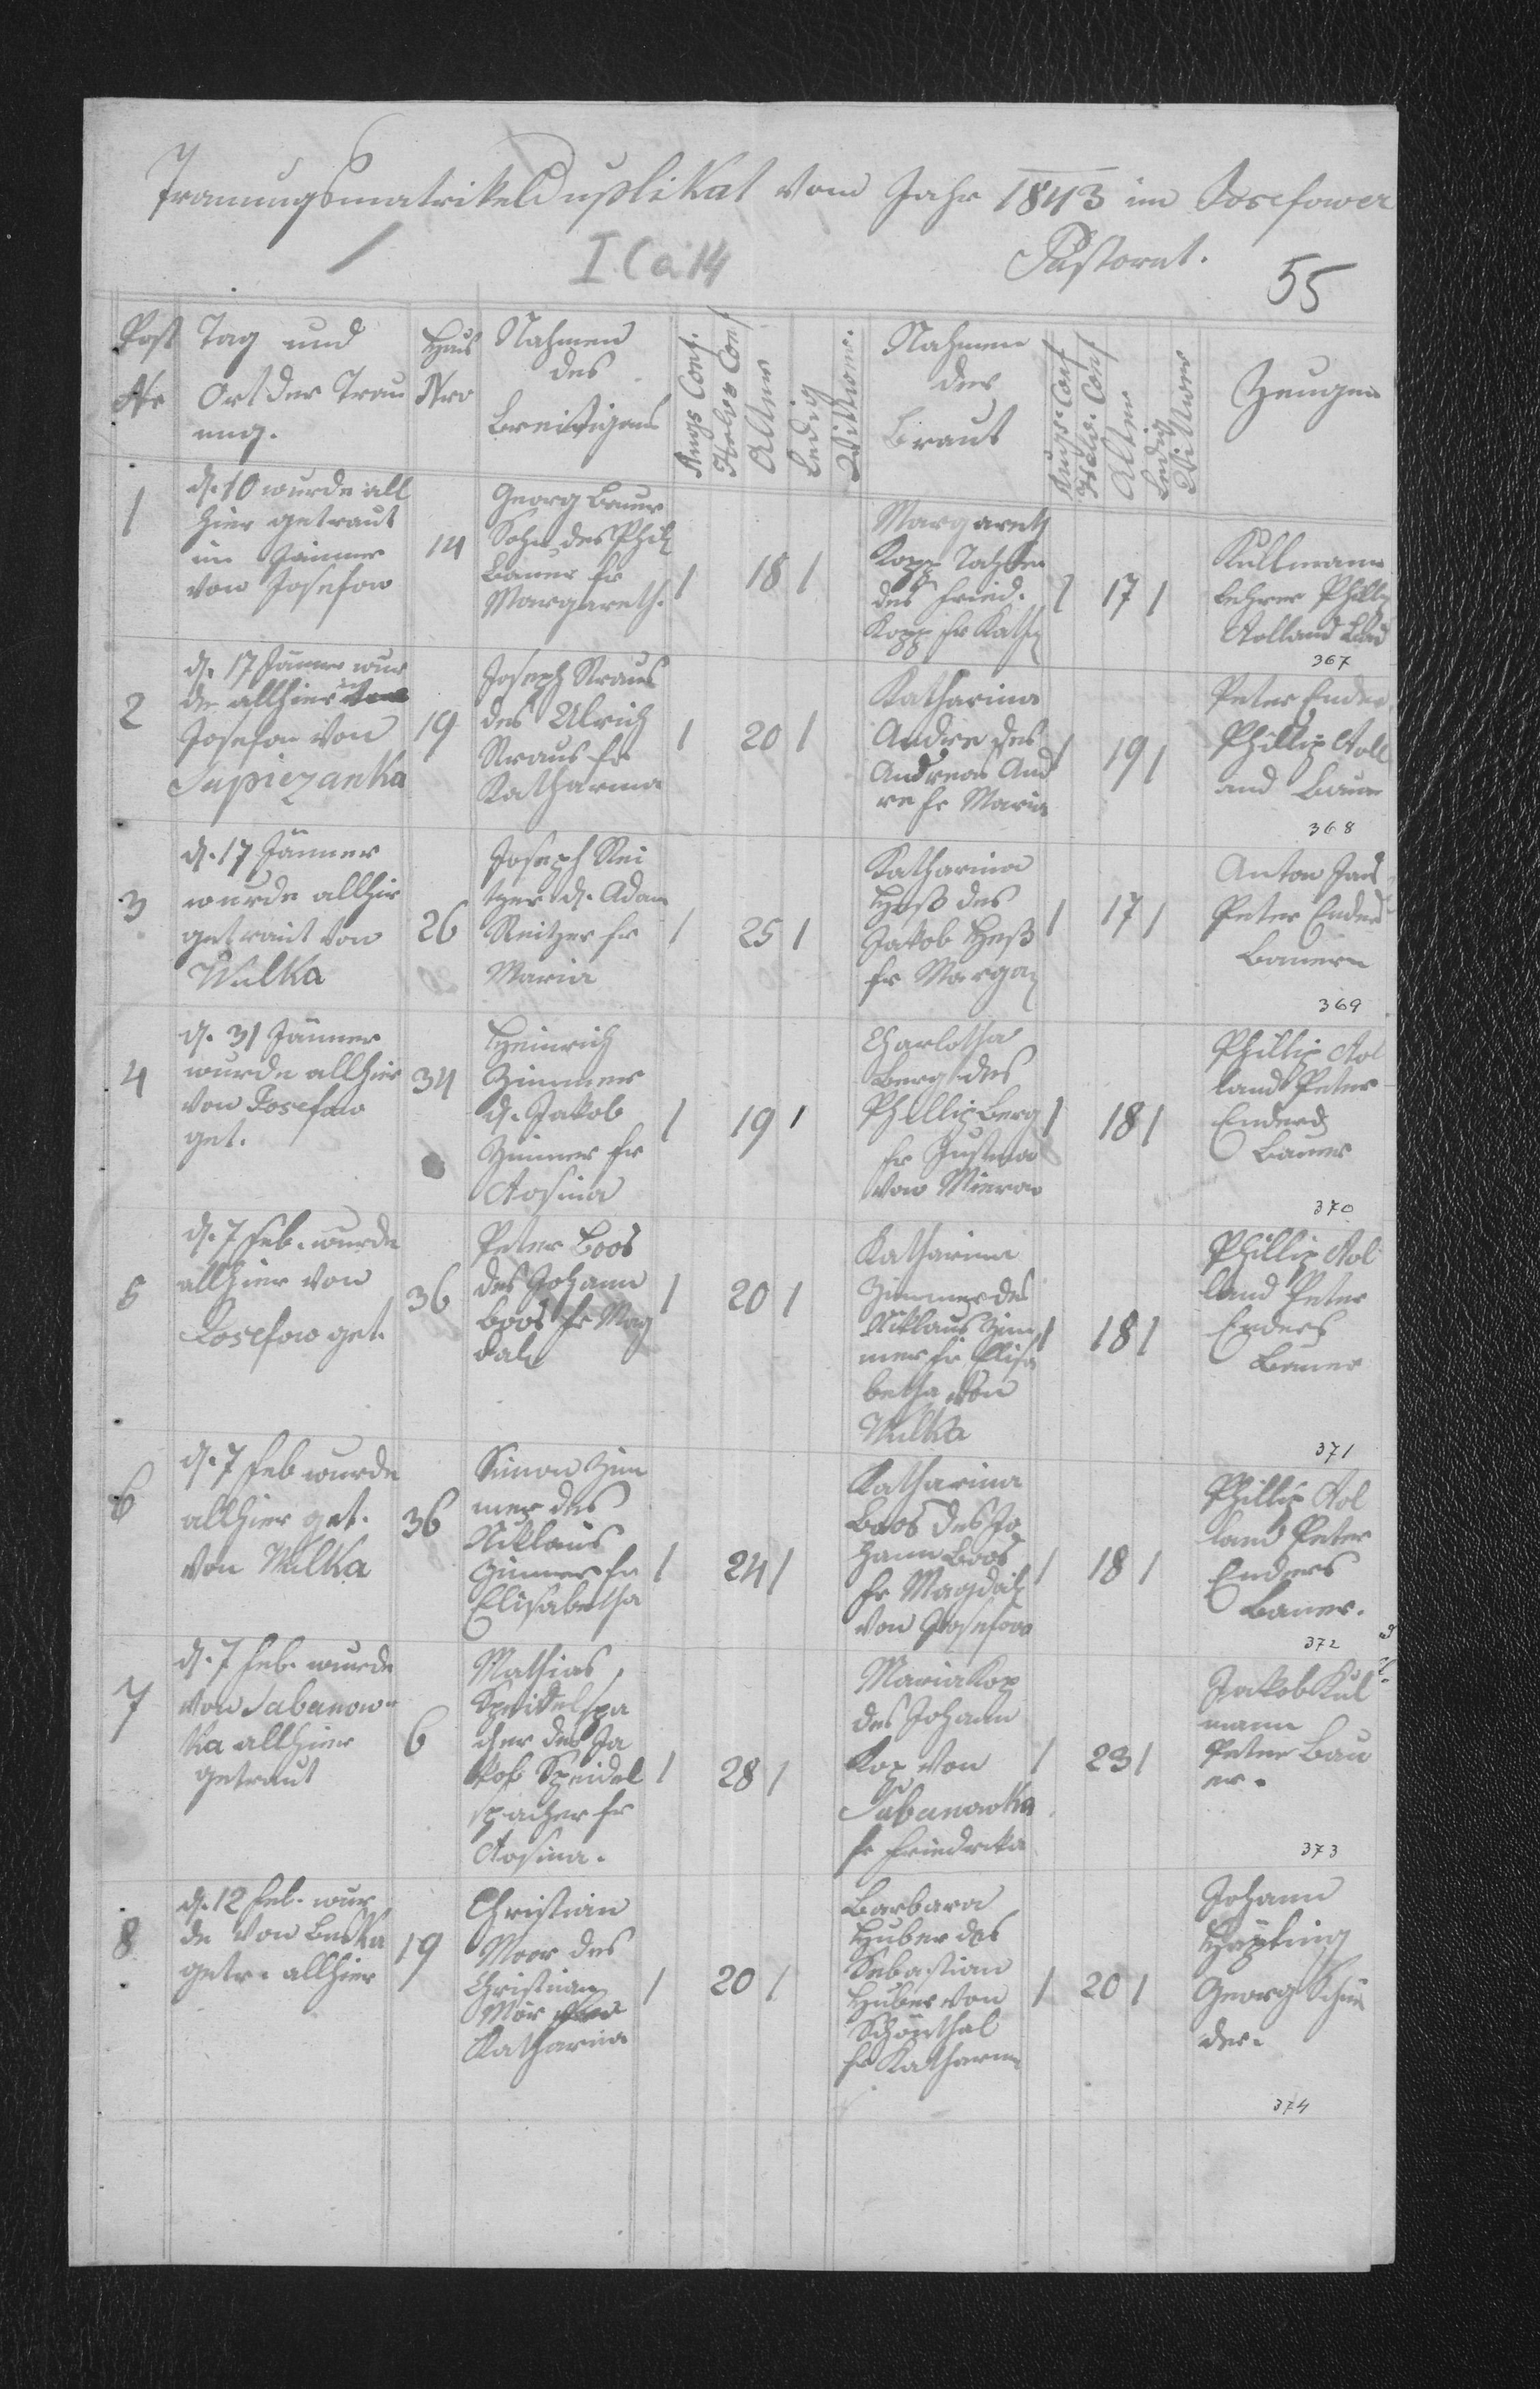 Trauungsmatrikelduplikat vom Jahr 1843 im Josefower
Pastorat.
I. Ca 14
55
Post Nr
Tag und
Ort der Trau
ung.
Haus
Nro
Nahmen
des
Breutigams
Augs Conf.
Helv Conf
Alter
Ledig
Wittwer.
Nahmen
der
Braut
Augs. Conf
Helv. Conf
Alter
Ledig
Wittwer
Zeugen
1
d. 10 wurde all
hier getraut
im Jänner
von Josefow
14
Georg Bauer
Sohn des Phil
Bauer fr
Margareth.
1
18 1
Margareth
Kopp Tochter
des Fried.
Kopp fr Kath
1
17 1
Kullmann
Lehrer Phillip
Rolland
367
2
d. 17 Jänner wur
de allhier in
Josefow von
Sapiezanka
19
Joseph Kraus
des Ulrich
Kraus fr
Katharina
1
20 1
Katharina
Andre des
Andreas And
re fr Maria
1
19 1
Peter Ender
Phillip Roll
and Bauer
368
3
d. 17 Jänner
wurde allhir
getraut von
Wulka
26
Joseph Rei
tzer d. Adam
Reitzer fr
Maria
1
25 1
Katharina
Heß des
Jakob Heß
fr Marga
1
17 1
Anton
Peter Enders
Bauern
369
4
d. 31 Jänner
wurde allhier
von Josefow
get.
34
Heinrich
Zimmer
d. Jakob
Zimmer fr
Rosina
1
19 1
Charlotha
Berg des
Phillip Berg
fr Justina
von Mierow
1
18 1
Phillip Rol
land Peter
Enders
Bauer
370
5
d. 7 Feb. wurde
allhier von
Josefow get.
36
Peter Boos
des Johann
Boos fr Mag
dal
1
20 1
Katharina
Zimmer des
Niklaus Zim
mer fr Elisa
betha von
Wulka
1
18 1
Phillip Rol
land Peter
Enders
Bauer
371
6
d. 7 Feb wurde
allhier get.
von Wulka
36
Simon Zim
mer des
Niklaus
Zimmer fr
Elisabetha
1
24 1
Katharina
Boos des Jo
hann Boos
fr Magdal
von Josefow
1
18 1
Phillip Rol
land Peter
Enders
Bauer.
372
7
d. 7 Feb. wurde
von Sabanow=
ka allhier
getraut
6
Mathias
Speidelspa
cher des Ja
kob Speidel
spacher fr
Rosina.
1
28 1
Maria Kop
des Johann
Kop von
Sabanowka
fr Friedrika
1
23 1
Jakob Kul
mann
Peter Bau
er.
373
8
d. 12 Feb. wur
de von
getr. allhier
19
Christian
Moor des
Christian
Mor
Katharina
1
20 1
Barbara
Huber des
Sebastian
Huber von
Schönthal
fr Katharina
1
20 1
Johann
Georg Schnei
der.
374